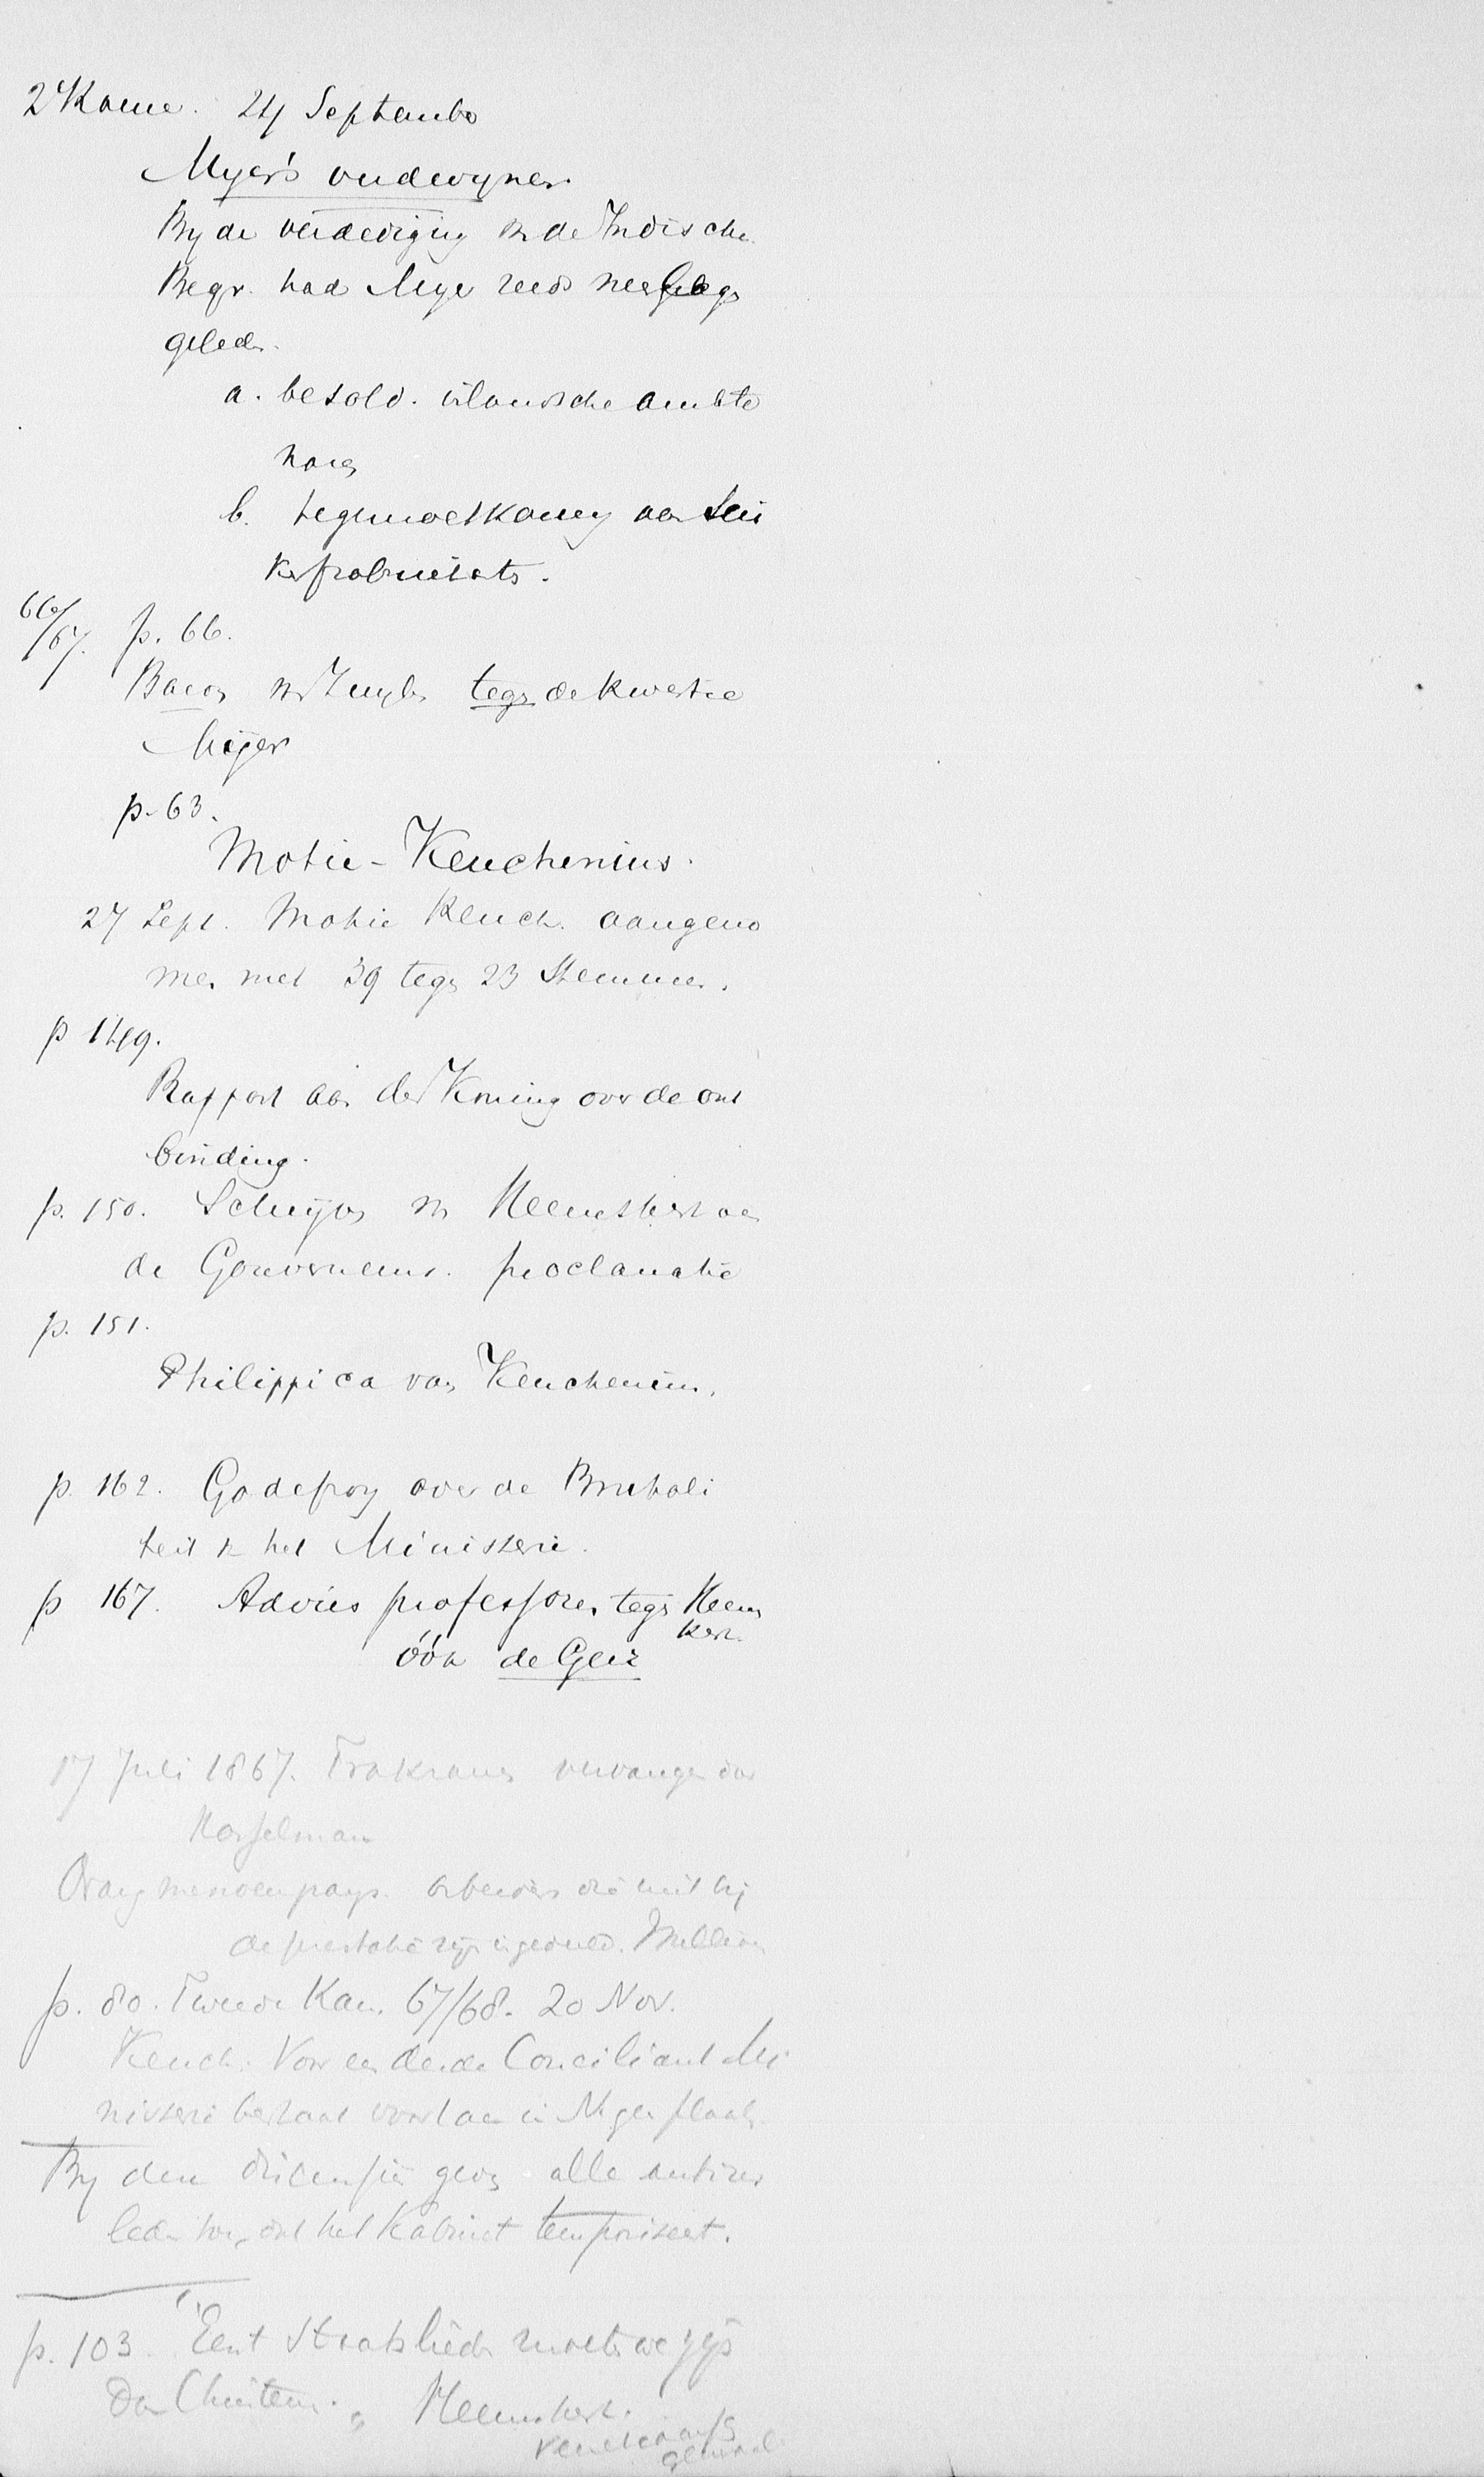 2e Kamer. 24 September
Myer's verdwijnen.
By de verdediging vn de Indische
Begr. had Myer reeds neerlaags
geleden.
a. besold. inlandsche ambte
naren
b. tegemoetkoming aan Sui
kerfabrikants.
66/67. p. 66.
Baron vn Zuylen tegen de kwestie
Meijer
p. 63.
Motie - Keuchenius.
27 Sept. Motie Keuch. aangeno
men met 39 tegen 23 Stemmen.
p 149.
Rapport aan den Koning over de ont
binding.
p. 150. Schrijven vn Heemskerk aan
de Gouverneurs. proclamatie
p. 151.
Philippica van Keuchenius.
p. 162. Godefroy over de Brutali
teit vn het Ministerie.
p 167. Advies professoren tegen Heems
kerk.
óók de Geer
17 Juli 1867. Trakranen vervangen door
Hasselman
Orang menoempangs. arbeiders die niet bij
de prestatie zijn ingedeeld.
p. 80. Tweede Kam. 67/68. 20 Nov.
Keuch. Voor een derde Conciliant Mi
nisterie bestaat voortaan in N geen plaats.
By den gaven alle antirev
leden toe, dat het Kabinet temporiseert.
p. 103. "Eerst Staatslieden moeten we zijn
dan Christenen." Heemskerk.